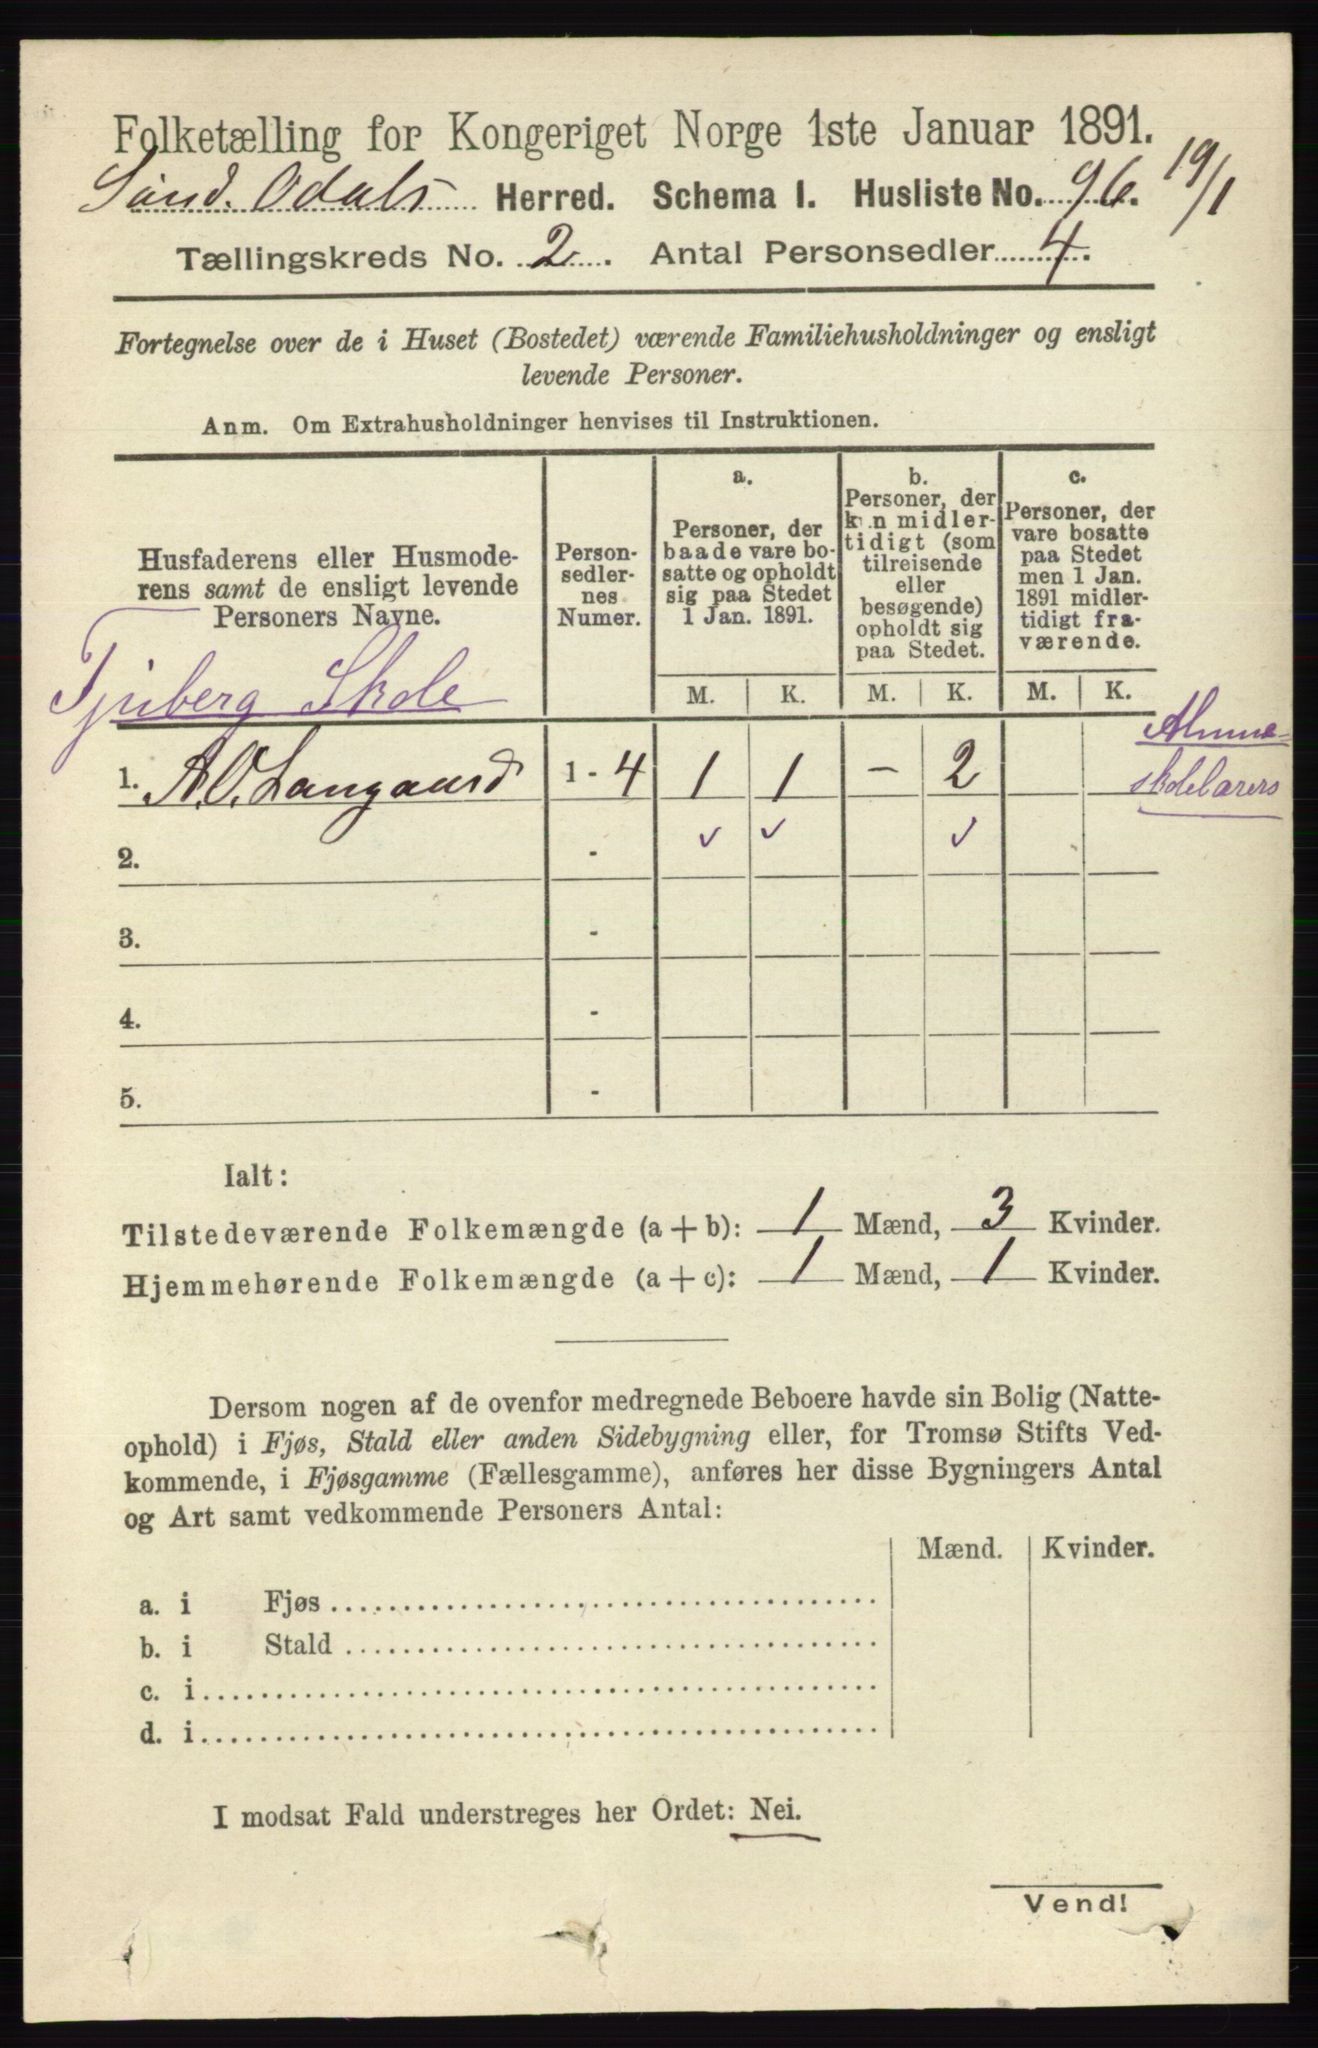 Folketælling for Kongeriget Norge 1ste Januar 1891.
Sönd. Odals Herred. Schema I. Husliste No. 96. 19/1
Tællingskreds No. 2. Antal Personsedler 4.
Fortegnelse over de i Huset (Bostedet) værende Familiehusholdninger og ensligt
levende Personer.
Anm. Om Extrahusholdninger henvises til Instruktionen.
Husfaderens eller Husmode-
rens samt de ensligt levende
Personers Navne.
Person-
sedler-
nes
Numer.
a.
Personer, der
baade vare bo-
satte og opholdt
sig paa Stedet
1 Jan. 1891.
b.
Personer, der
kun midler-
tidigt (som
tilreisende
eller
besøgende)
opholdt sig
paa Stedet.
c.
Personer, der
vare bosatte
paa Stedet
men 1 Jan.
1891 midler-
tidigt fra-
værende.
M. K. M. K. M. K.
Tjuberg Skole
1. A. O. Langaard 1 - 4 1 1 - 2
Almue-
skolelærers
2. - ✓ ✓ ✓
3. -
4. -
5. -
Ialt:
Tilstedeværende Folkemængde (a + b): 1 Mænd, 3 Kvinder.
Hjemmehørende Folkemængde (a + c): 1 Mænd, 1 Kvinder.
Dersom nogen af de ovenfor medregnede Beboere havde sin Bolig (Natte-
ophold) i Fjøs, Stald eller anden Sidebygning eller, for Tromsø Stifts Ved-
kommende, i Fjøsgamme (Fællesgamme), anføres her disse Bygningers Antal
og Art samt vedkommende Personers Antal:
Mænd. Kvinder.
a. i Fjøs
b. i Stald
c. i
d. i
I modsat Fald understreges her Ordet: Nei.
Vend!